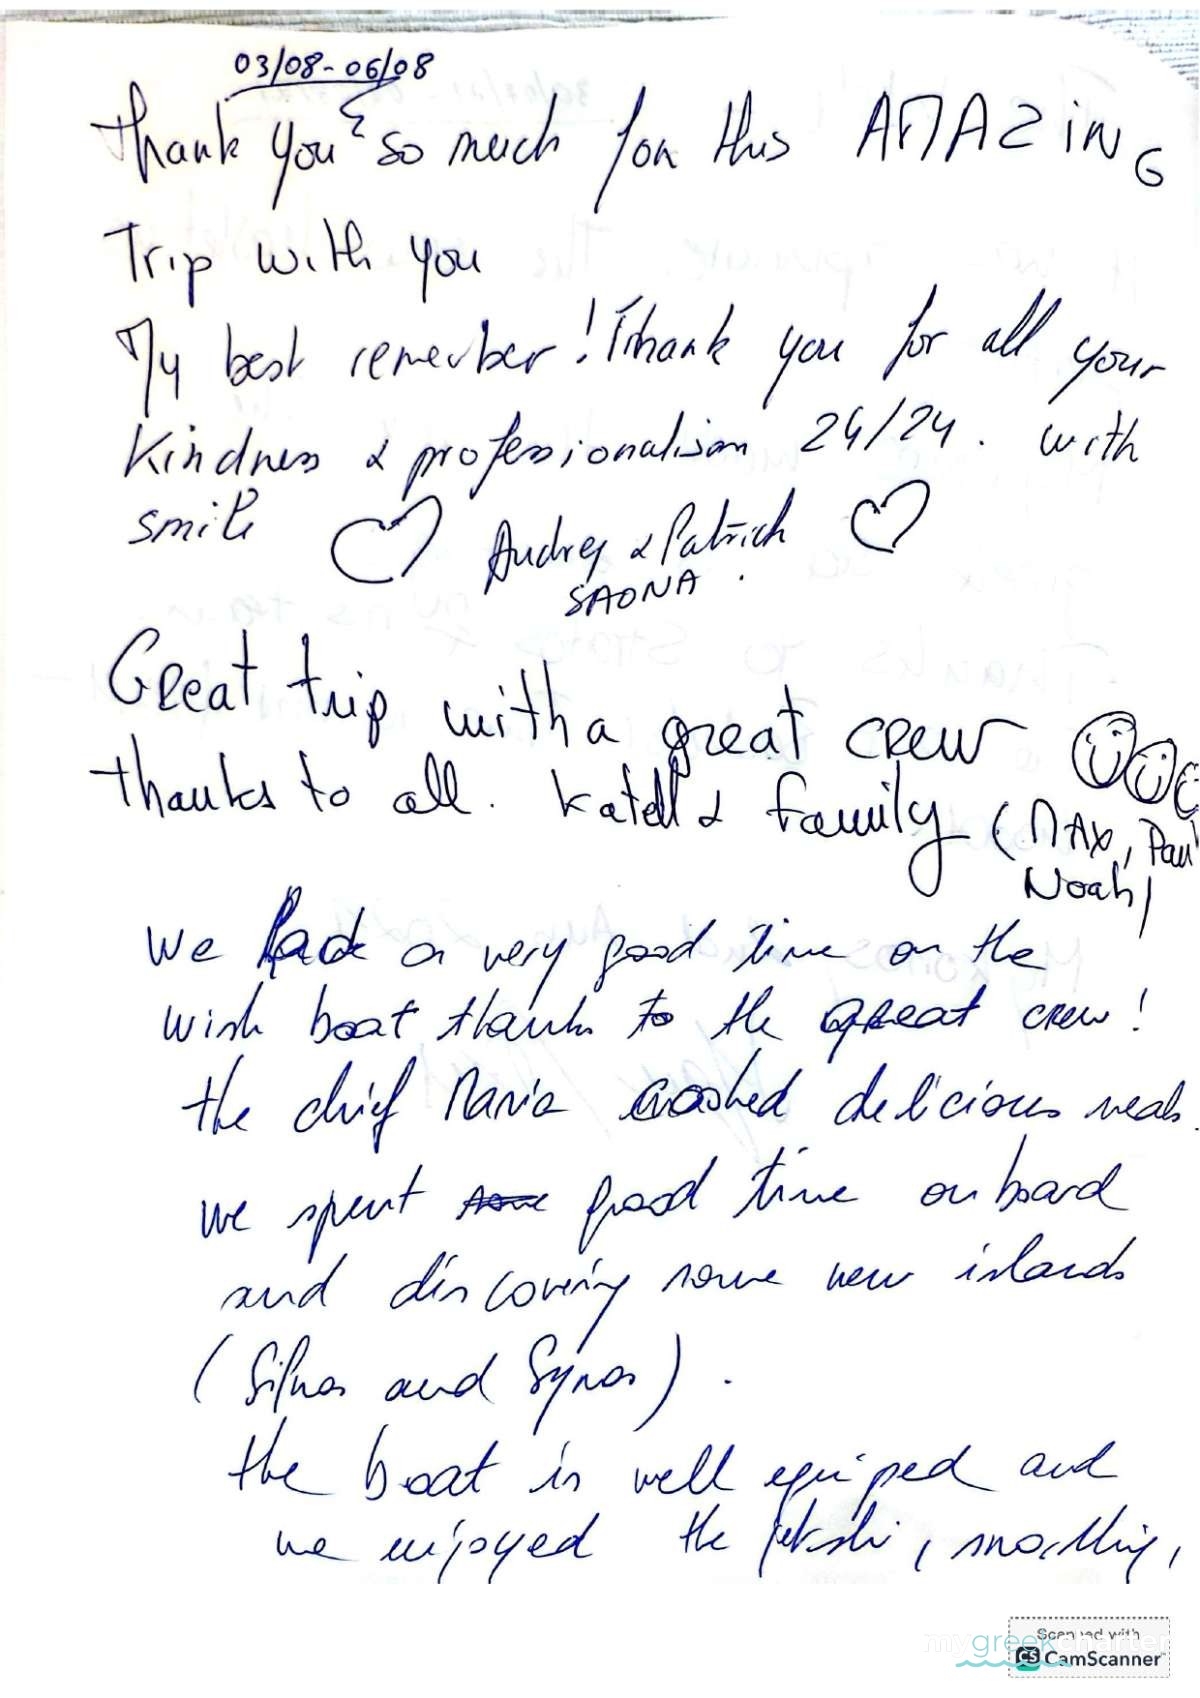 03/08-06/08
Thank you so much for this AMAZING
Trip with you
My best remember! Thank you for all your
Kindness & professionalism 24/24. with
smile Audrey & Patrick
SAONA.
Great trip with a great crew
thanks to all. Katell & family (MAX, Paul
Noah)
We had a very good time on the
wish boat thanks to the great crew!
the chief Maria cooked delicious meals.
we spent good time on board
and discovering some new islands
(Sifnos and Syros).
the boat is well equiped and
we enjoyed the jetski, snorkling,
Scanned with
mygreekcharter
CS CamScanner